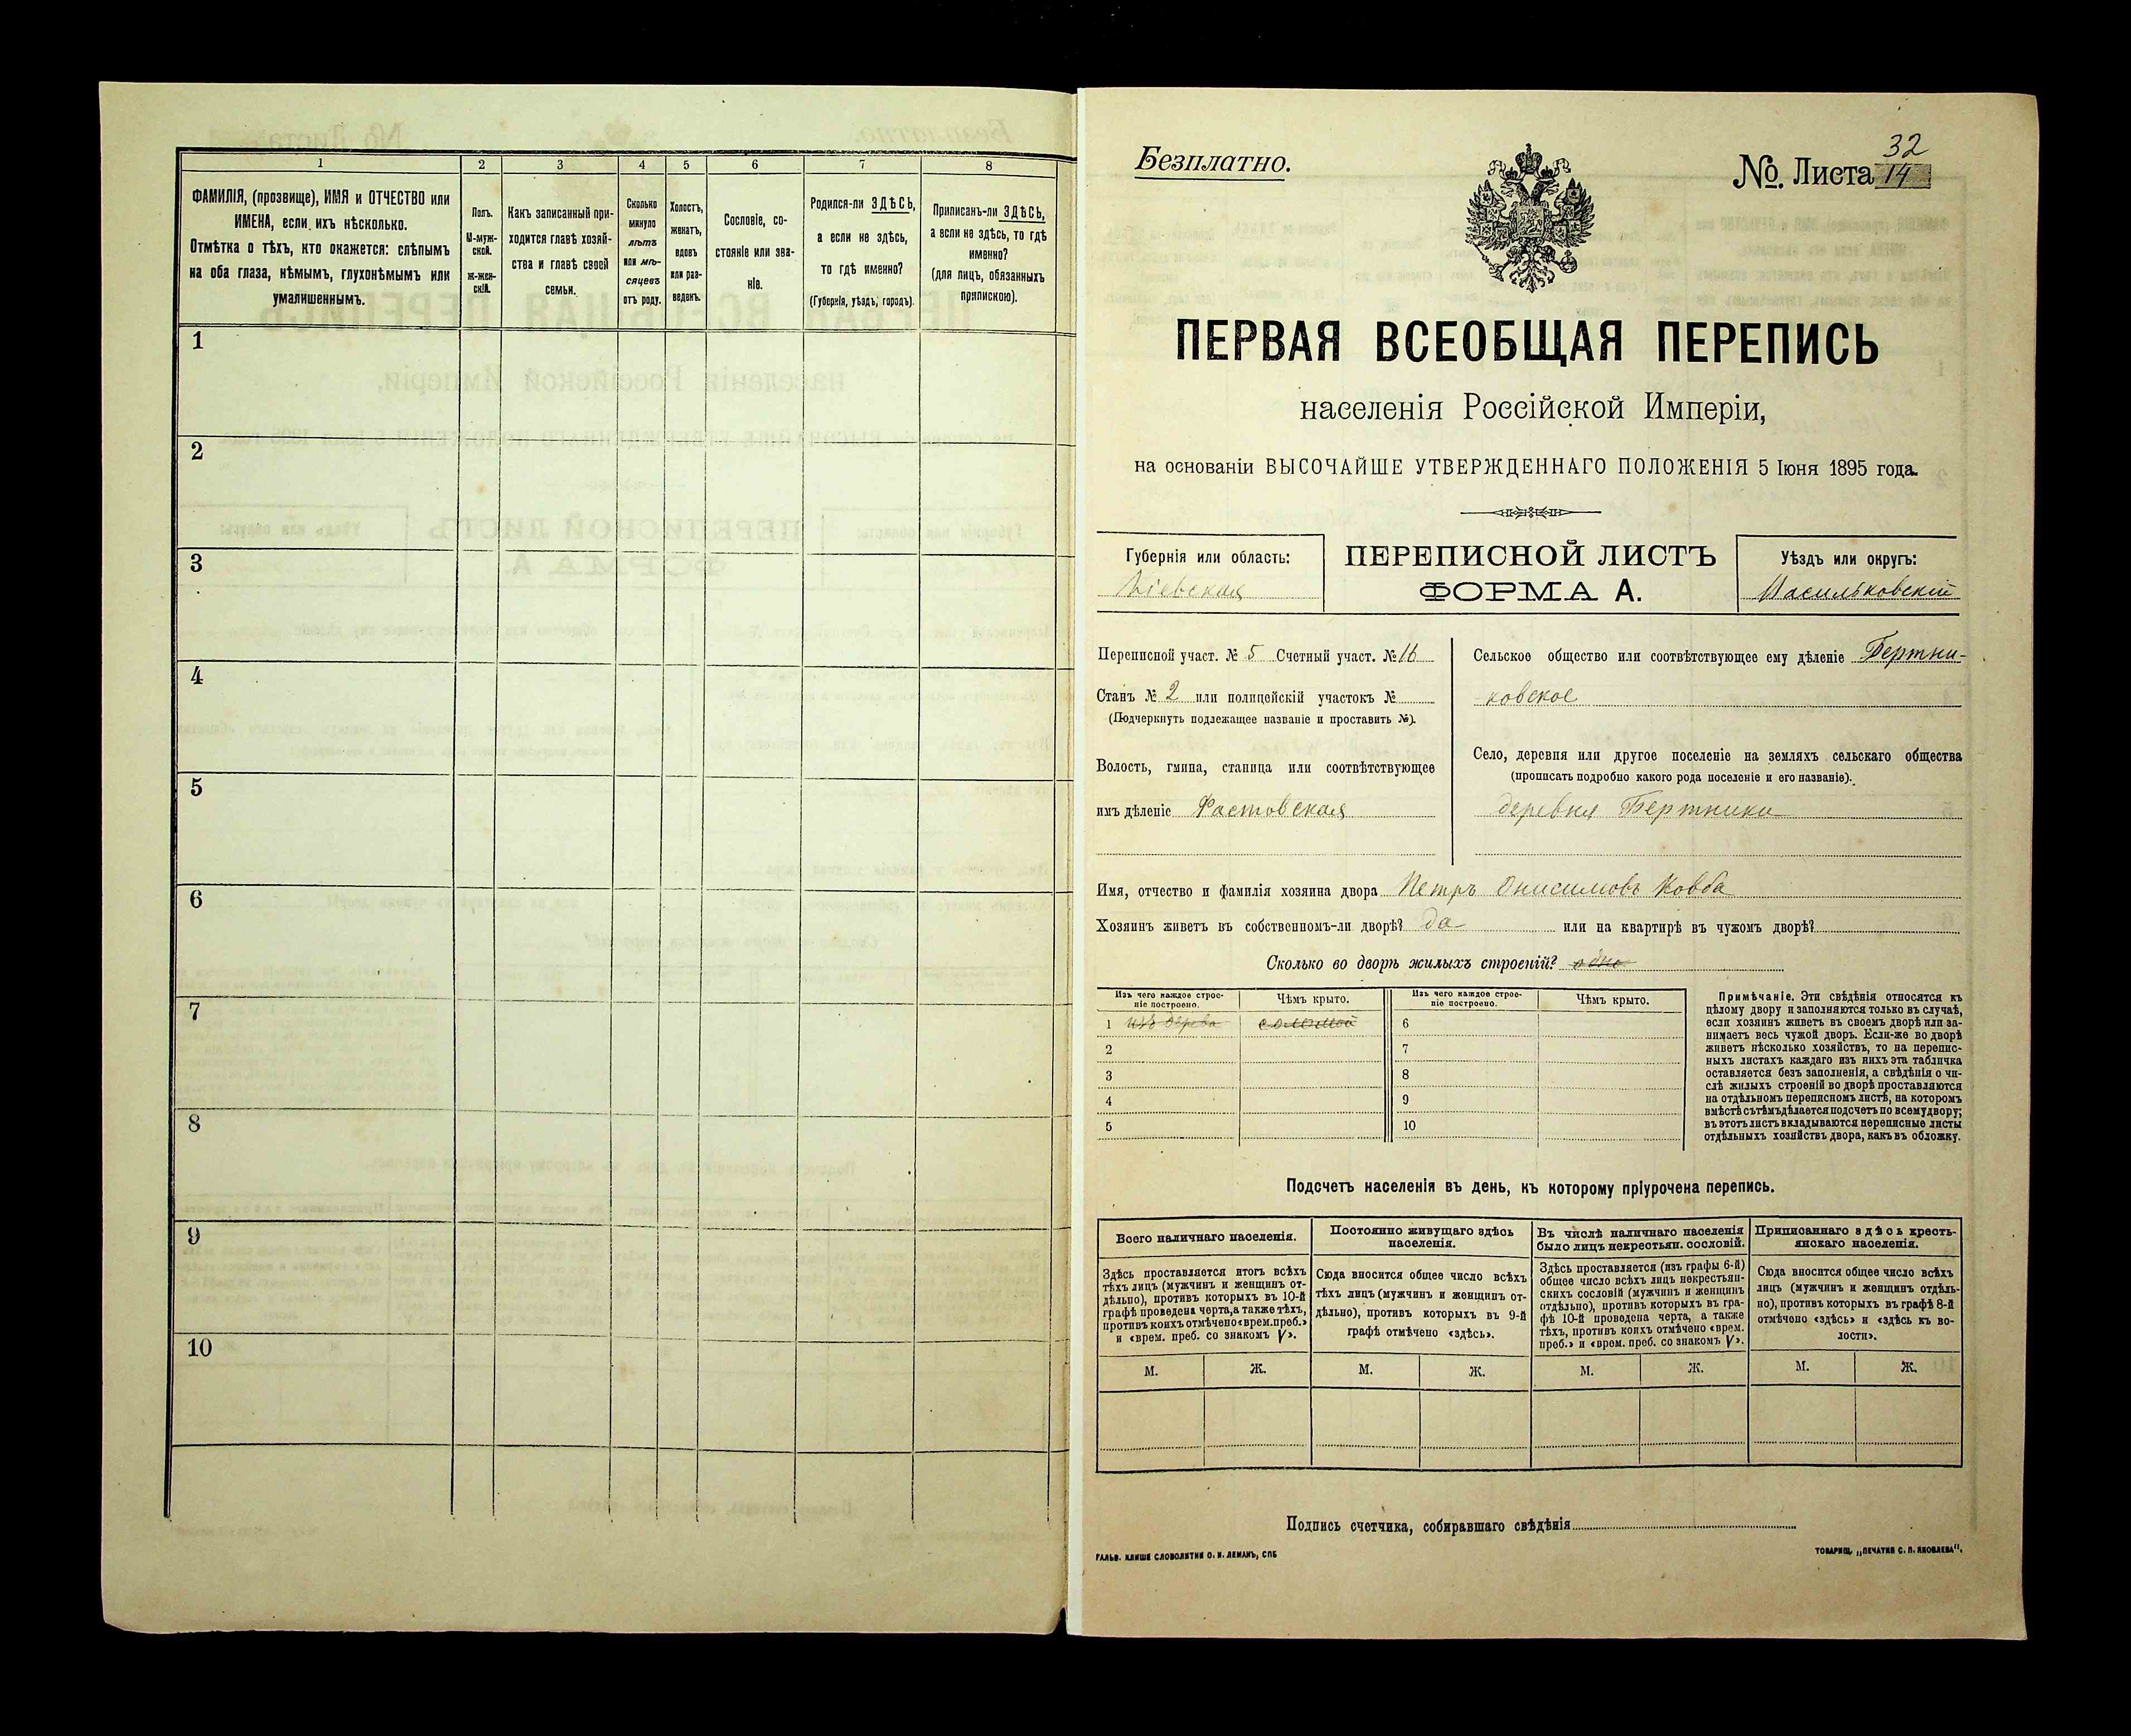 1
2
3
4
5
6
7
8
ФАМИЛІЯ, (прозвище), ИМЯ и ОТЧЕСТВО или
ИМЕНА, если ихъ нѣсколько.
Отмѣтка о тѣхъ, кто окажется: слѣпымъ
на оба глаза, нѣмымъ, глухонѣмымъ или
умалишеннымъ.
Полъ.
М-муж-
ской.
Ж-жен-
скій.
Какъ записанный при-
ходится главѣ хозяй-
ства и главѣ своей
семьи.
Сколько
минуло
лѣтъ
или мѣ-
сяцевъ
отъ роду.
Холостъ,
женатъ,
вдовъ
или раз-
веденъ.
Сословіе, со-
стояніе или зва-
ніе.
Родился-ли ЗДѢСЬ,
а если не здѣсь,
то гдѣ именно?
(Губернія, уѣздъ, городъ).
Приписанъ-ли ЗДѢСЬ,
а если не здѣсь, то гдѣ
именно?
(для лицъ, обязанныхъ
припискою).
1
2
3
4
5
6
7
8
9
10
Безплатно.
32
№. Листа 14
ПЕРВАЯ ВСЕОБЩАЯ ПЕРЕПИСЬ
населенія Россійской Имперіи,
на основаніи ВЫСОЧАЙШЕ УТВЕРЖДЕННАГО ПОЛОЖЕНІЯ 5 Іюня 1895 года.
Губернія или область:
Кіевская
ПЕРЕПИСНОЙ ЛИСТЪ
ФОРМА А.
Уѣздъ или округъ:
Васильковскій
Переписной участ. № 5 Счетный участ. № 16
Станъ № 2 или полицейскій участокъ №
(Подчеркнуть подлежащее названіе и проставить №).
Волость, гмина, станица или соотвѣтствующее
имъ дѣленіе Фастовская
Сельское общество или соотвѣтствующее ему дѣленіе Бертни-
ковское
Село, деревня или другое поселеніе на земляхъ сельскаго общества
(прописать подробно какого рода поселеніе и его названіе).
деревня Бертники
Имя, отчество и фамилія хозяина двора Петръ Онисимовъ Ковба
Хозяинъ живетъ въ собственномъ-ли дворѣ? да или на квартирѣ въ чужомъ дворѣ?
Сколько во дворѣ жилыхъ строеній? одно
Изъ чего каждое строе-
ніе построено.
Чѣмъ крыто.
Изъ чего каждое строе-
ніе построено.
Чѣмъ крыто.
1 изъ дерева соломой
2
3
4
5
6
7
8
9
10
Примѣчаніе. Эти свѣдѣнія относятся къ
цѣлому двору и заполняются только въ случаѣ,
если хозяинъ живетъ въ своемъ дворѣ или за-
нимаетъ весь чужой дворъ. Если-же во дворѣ
живетъ нѣсколько хозяйствъ, то на перепис-
ныхъ листахъ каждаго изъ нихъ эта табличка
оставляется безъ заполненія, а свѣдѣнія о чи-
слѣ жилыхъ строеній во дворѣ проставляются
на отдѣльномъ переписномъ листѣ, на которомъ
вмѣстѣ съ тѣмъ дѣлается подсчетъ по всему двору;
въ этотъ листъ вкладываются переписные листы
отдѣльныхъ хозяйствъ двора, какъ въ обложку.
Подсчетъ населенія въ день, къ которому пріурочена перепись.
Всего наличнаго населенія.
Здѣсь проставляется итогъ всѣхъ
тѣхъ лицъ (мужчинъ и женщинъ от-
дѣльно), противъ которыхъ въ 10-й
графѣ проведена черта, а также тѣхъ,
противъ коихъ отмѣчено «врем. преб.»
и «врем. преб. со знакомъ V».
Постоянно живущаго здѣсь
населенія.
Сюда вносится общее число всѣхъ
тѣхъ лицъ (мужчинъ и женщинъ от-
дѣльно), противъ которыхъ въ 9-й
графѣ отмѣчено «здѣсь».
Въ числѣ наличнаго населенія
было лицъ некрестьян. сословій.
Здѣсь проставляется (изъ графы 6-й)
общее число всѣхъ лицъ некрестьян-
скихъ сословій (мужчинъ и женщинъ
отдѣльно), противъ которыхъ въ гра-
фѣ 10-й проведена черта, а также
тѣхъ, противъ коихъ отмѣчено «врем.
преб.» и «врем. преб. со знакомъ V».
Приписаннаго здѣсь кресть-
янскаго населенія.
Сюда вносится общее число всѣхъ
лицъ (мужчинъ и женщинъ отдѣль-
но), противъ которыхъ въ графѣ 8-й
отмѣчено «здѣсь» и «здѣсь къ во-
лости».
М. Ж. М. Ж. М. Ж. М. Ж.
Подпись счетчика, собиравшаго свѣдѣнія
ГАЛЬВ. КЛИШЕ СЛОВОЛИТНИ О. И. ЛЕМАНЪ, СПБ
ТОВАРИЩ. „ПЕЧАТНЯ С. П. ЯКОВЛЕВА".